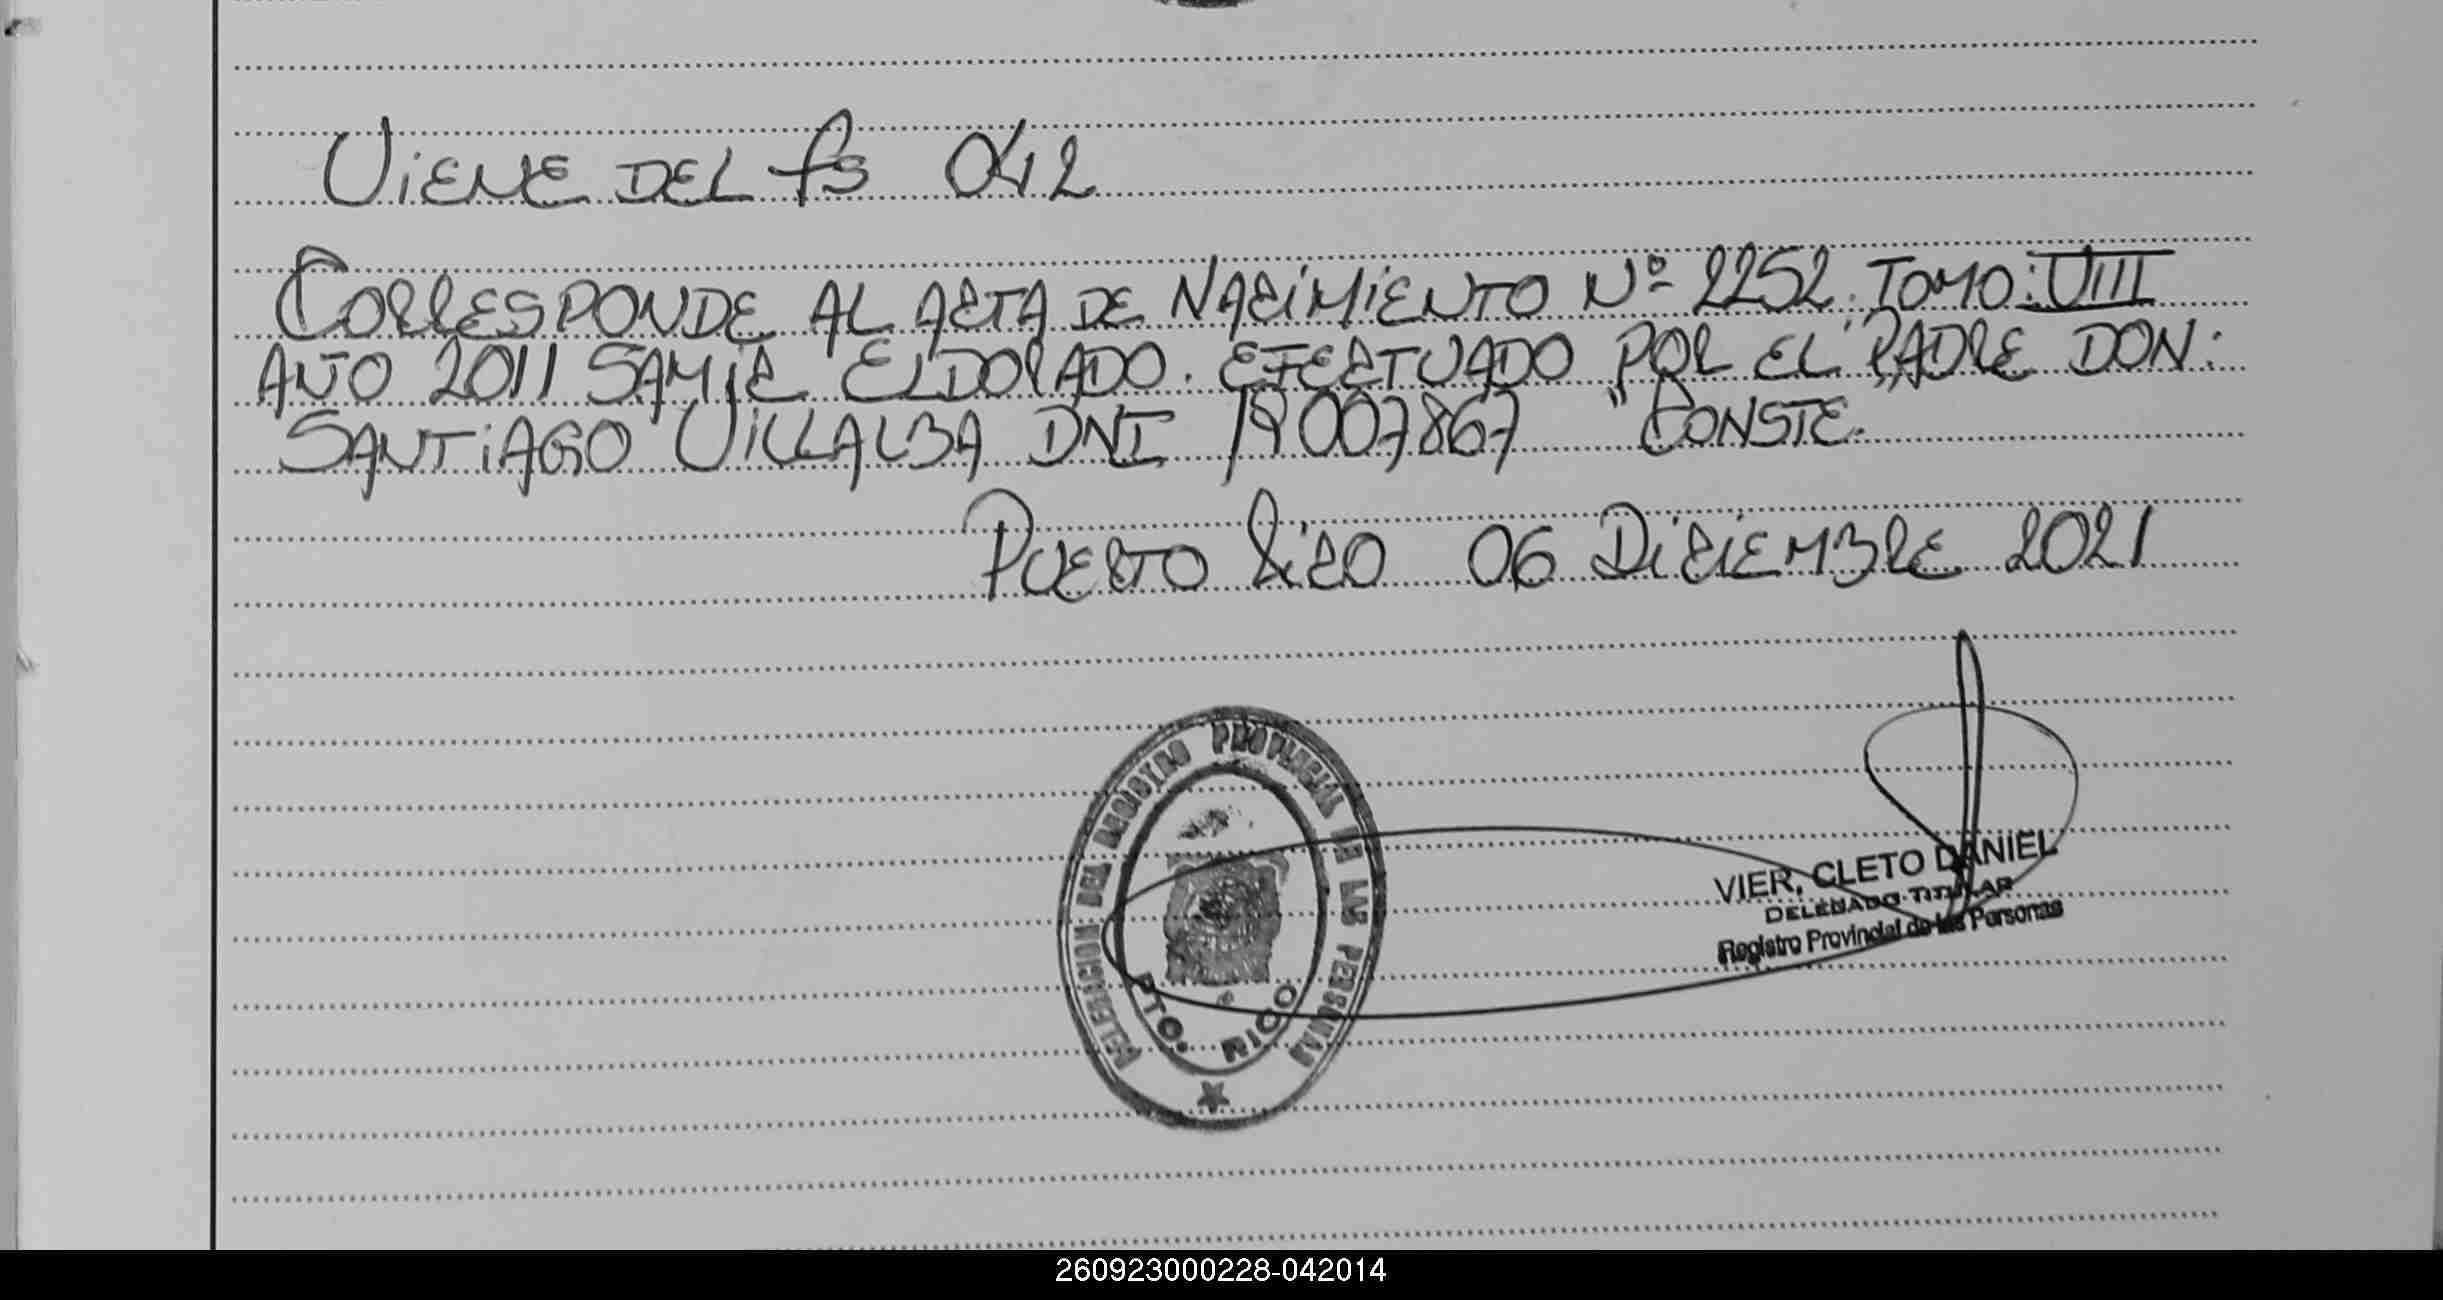 VIENE DEL fs 042
CORRESPONDE AL ACTA DE NACIMIENTO Nº 2252. TOMO: VIII
AÑO 2011 SAMIC ELDORADO. EFECTUADO POR EL PADRE DON:
SANTIAGO VILLALBA DNI 19007867 "CONSTE."
PUERTO RICO 06 DICIEMBRE 2021
DELEGACION DEL REGISTRO PROVINCIAL DE LAS PERSONAS
PTO. RICO
VIER, CLETO DANIEL
DELEGADO TITULAR
Registro Provincial de las Personas
260923000228-042014